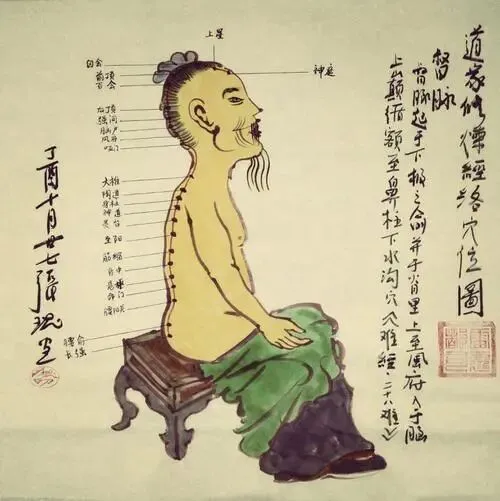 道家修煉經络穴位圖
督脉
督脉起于下极之俞并于脊里上至風府入于脑
上巅循额至鼻柱下水沟穴《难經·二十八难》
上星
神庭
囟会
前顶
百会
后顶
强间
脑户
风府
哑门
大椎
陶道
身柱
神道
灵台
至阳
筋缩
脊中
命门
腰阳关
腰俞
长强
丁酉十月廿七張